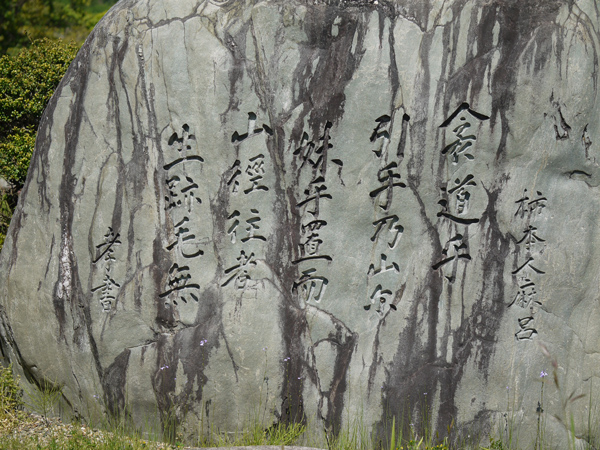 柿本人麻呂
衾道乎
引手乃山尓
妹乎置而
山徑往者
生跡毛無
孝書